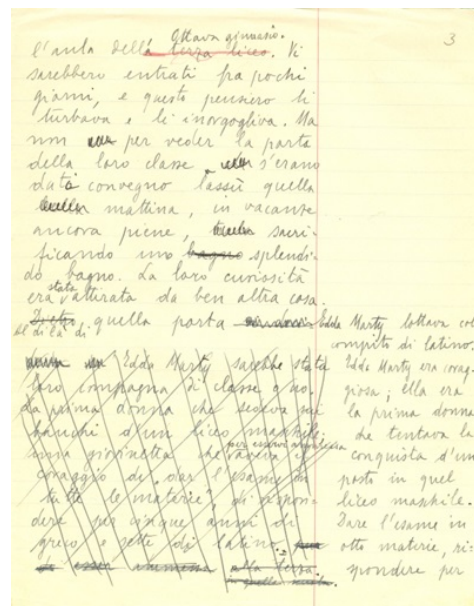 3
Ottava ginnasio.
l'aula della terza liceo. Vi
sarebbero entrati fra pochi
giorni, e questo pensiero li
turbava e li inorgogliva. Ma
non per veder la porta
della loro classe s'erano
dato convegno lassù quella
mattina, in vacanze
ancora piene, sacri-
ficando uno bagno splendi-
do bagno. La loro curiosità
era stata attirata da ben altra cosa.
Dietro quella porta
al di là di
Edda Marty sarebbe stata
loro compagna di classe
La prima donna che sedeva sui
banchi d'un liceo maschile:
una giovinetta che aveva il
per esservi ammessa
coraggio di dar l'esame in
tutte le materie, di rispon-
dere per cinque anni di
greco e sette di latino.
di esser ammessa alla terza
in quella scuola.
Edda Marty lottava col
compito di latino.
Edda Marty era corag-
giosa; ella era
la prima donna
che tentava la
conquista d'un
posto in quel
liceo maschile.
Dare l'esame in
otto materie, ri-
spondere per